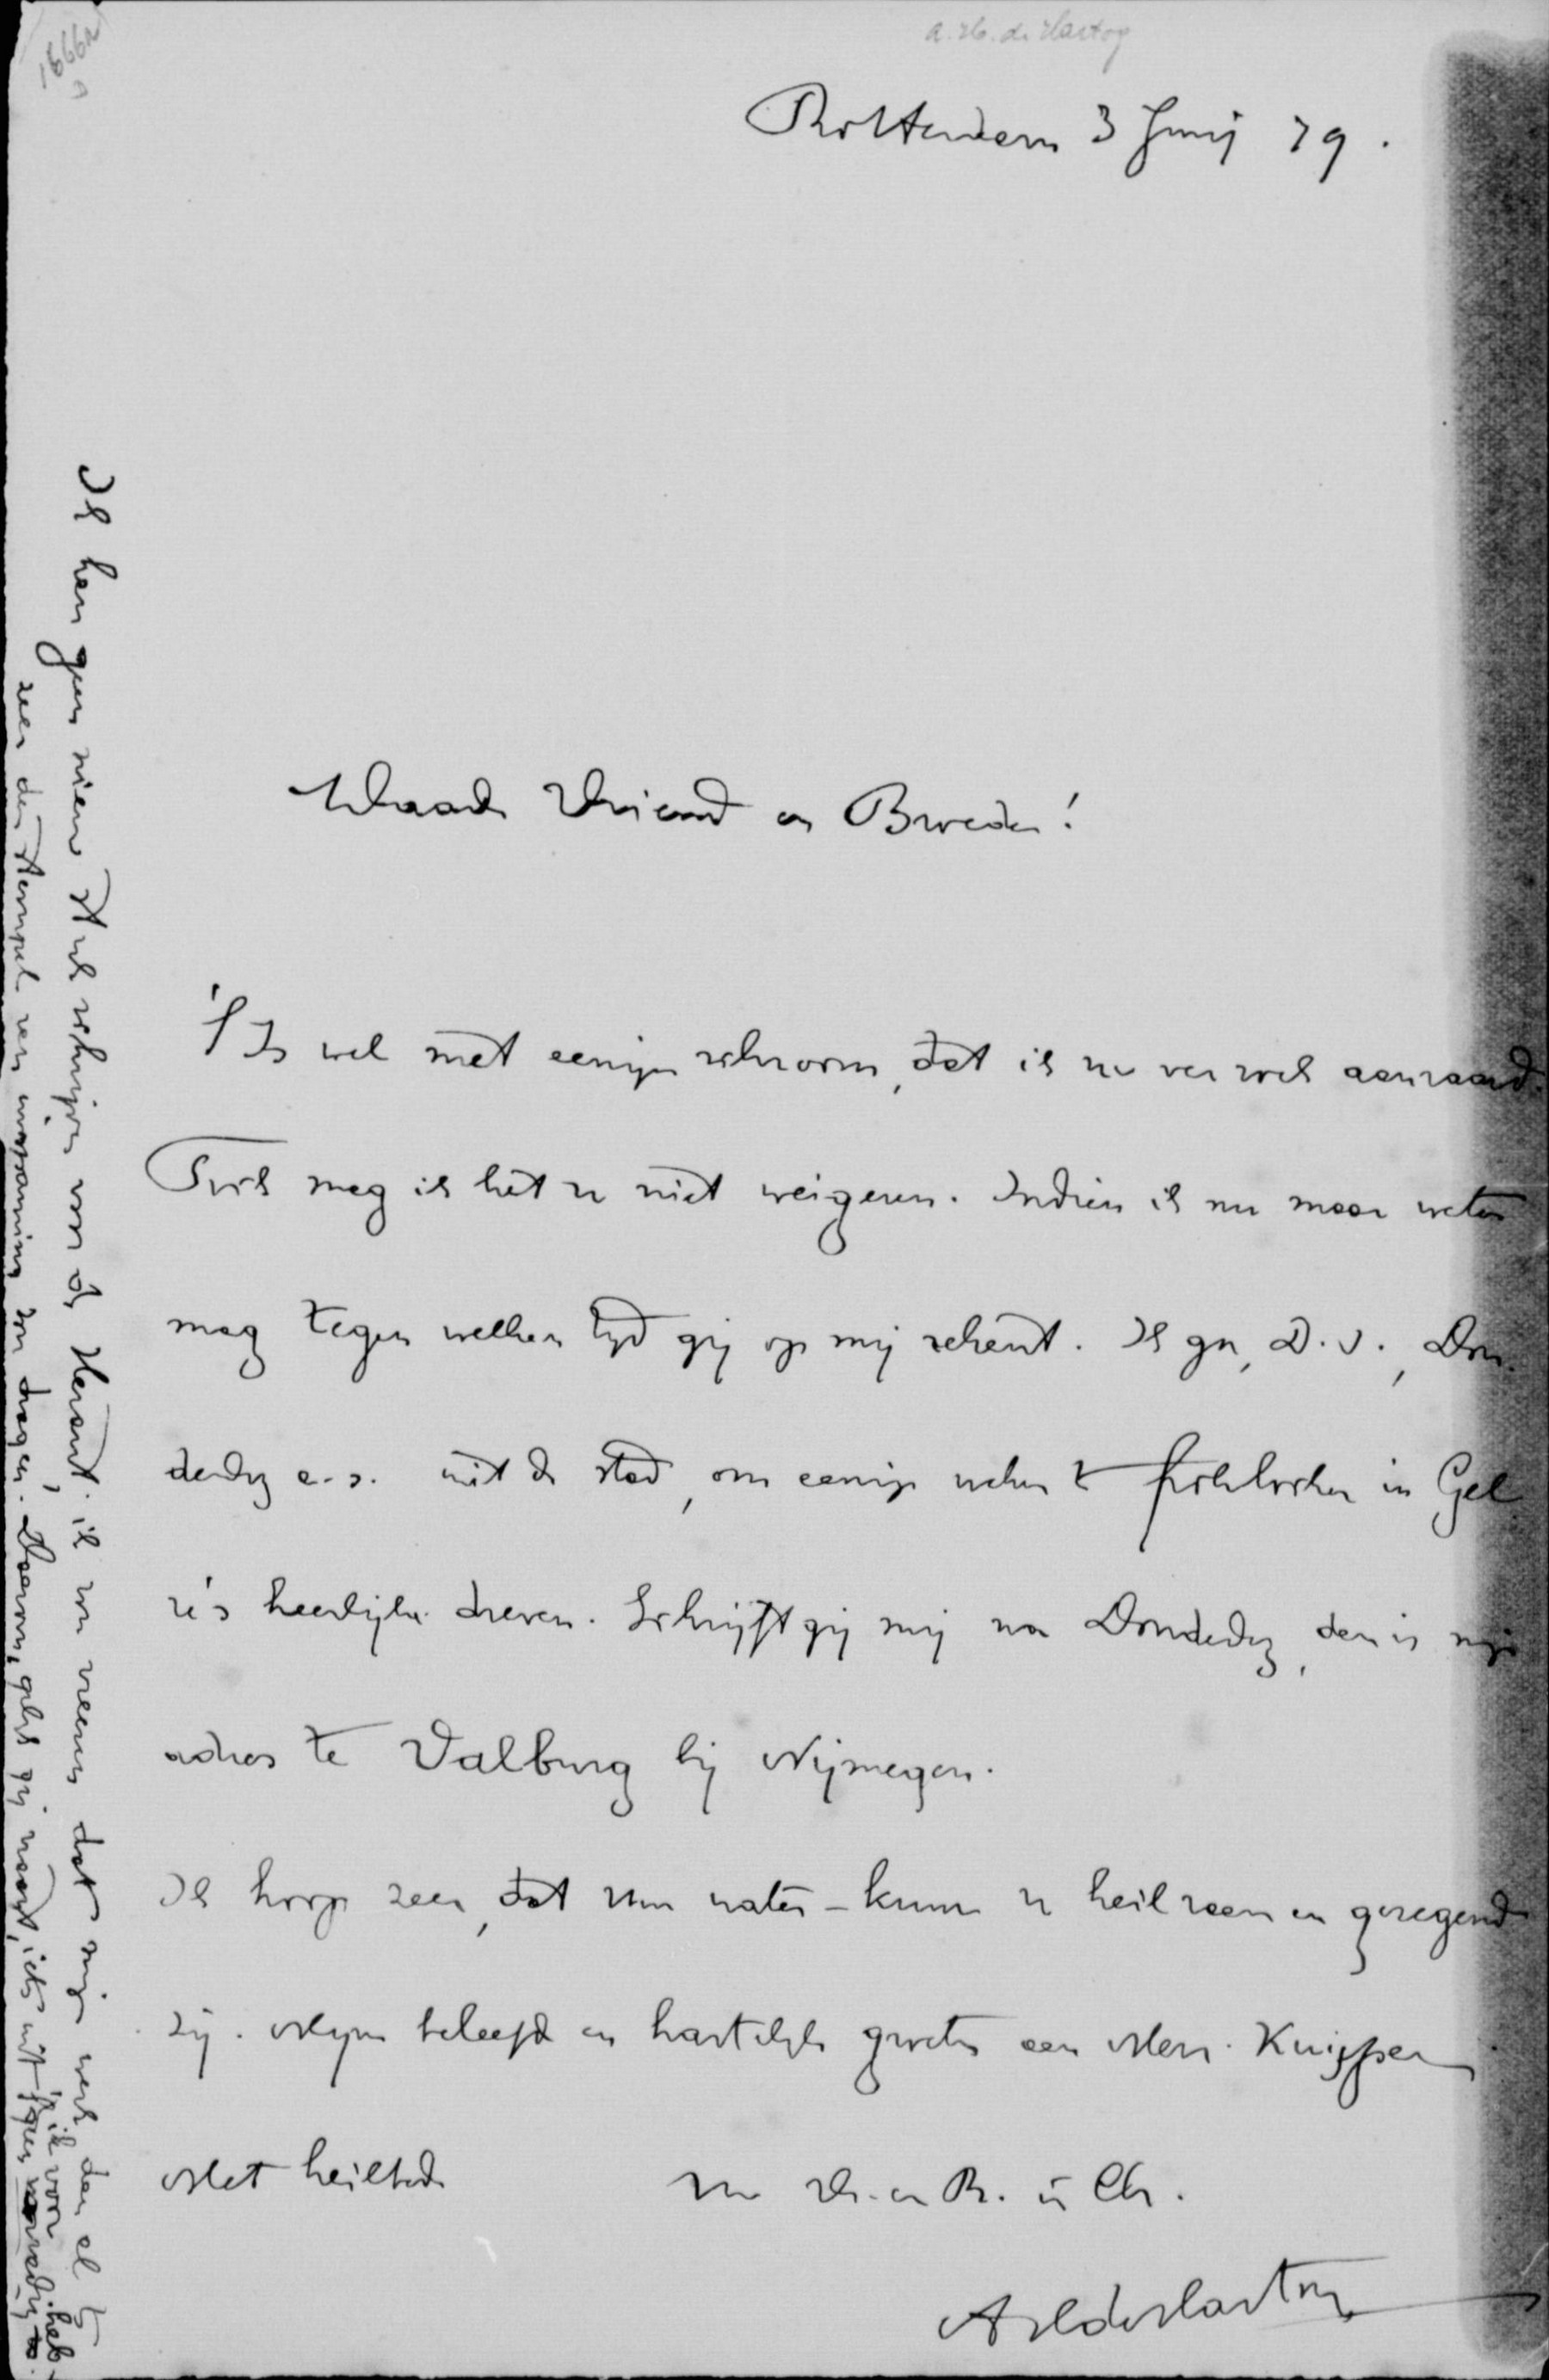 1866a
A. H. de Hartog
Rotterdam 3 Junij 79.
Waarde Vriend en Broeder!
'T Is wel met eenigen schroom, dat ik uw verzoek aanvaard.
Toch mag ik het u niet weigeren. Indien ik nu maar weten
mag tegen welken tijd gij op mij rekent. Ik ga, D.V., Don-
derdag a.s. uit de stad, om eenige weken te in Gel-
re's heerlijke dreven. Schrijft gij mij na Donderdag, dan is mijn
adres te Valburg bij Nijmegen.
Ik hoop zeer, dat uw water-kuur u heilzaam en gezegend
zij. Mijne beleefde en hartelijke groeten aan Mevr. Kuijper
Met heilbede uw Vr. en Br. in Chr.
AHdeHartog
Ik kan geen nieuw stuk schrijven voor de Heraut. ik zou vreezen dat mijn werk dan al te
zeer den stempel van inspanning zou dragen. Daarom, gelijk gij vraagt, iets uit 'tgeen ik voorradig heb.